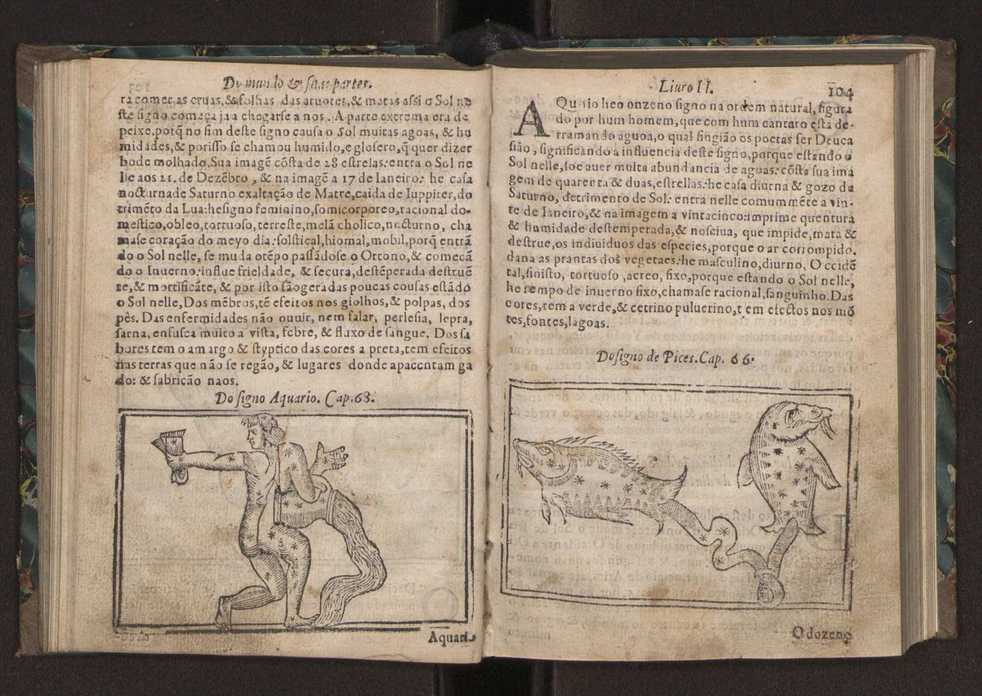 Do mundo & suas partes.
ra comer, as eruas, & folhas das aruores, & matas assi o Sol ne
ste signo começa ja a chegarse a nos. A parte extrema era de
peixe, porq̃ no fim deste signo causa o Sol muitas agoas, & hu
midades, & porisso se chamou humido, e glosero, q̃ quer dizer
bode molhado. Sua imagẽ cõsta de 28 estrelas: entra o Sol ne
lle aos 21. de Dezẽbro, & na imagẽ a 17 de Ianeiro: he casa
nocturna de Saturno exaltação de Matre, caida de Iuppiter, do
trimẽto da Lua: he signo feminino, somicorporeo, racional do-
mestico, obleo, tortuoso, terreste, melã cholico, nocturno, cha
mase coração do meyo dia: solstical, hiomal, mobil, porq̃ entrã
do o Sol nelle, se muda otẽpo passãdose o Ottono, & começã
do o Inuerno: influe frieldade, & secura, destẽperada destruẽ
te, & mortificãte, & por isto são geradas poucas cousas estãdo
o Sol nelle, Dos mẽbros, tẽ efeitos nos giolhos, & polpas, dos
pès. Das enfermidades não ouuir, nem falar, perlesia, lepra,
sarna, ensusca muito a vista, febre, & fluxo de sangue. Dos sa
bores tem o amargo & styptico das cores a preta, tem efeitos
nas terras que não se regão, & lugares donde apacentam ga
do: & fabricão naos.
Do signo Aquario. Cap. 63.
Aquari
Liuro II.
104
AQuario he o onzeno signo na ordem natural, figura
do por hum homem, que com hum cantaro esta de-
rramando aguoa, o qual fingião os poetas ser Deuca
lião, significando a influencia deste signo, porque estando o
Sol nelle, soe auer muita abundancia de aguas: cõsta sua ima
gem de quarenta & duas, estrellas: he casa diurna & gozo da
Saturno, detrimento de Sol: entra nelle commummẽte a vin-
te de Ianeiro, & na imagem a vintacinco: imprime quentura
& humidade destemperada, & nosciua, que impide, mata &
destrue, os indiuiduos das especies, porque o ar corrompido,
dana as prantas dos vegetaes: he masculino, diurno, Occidẽ
tal, sinisto, tortuoso, aereo, fixo, porque estando o Sol nelle,
he tempo de inuerno fixo, chamase racional, sanguinho. Das
cores, tem a verde, & cetrino puluerino, tem efectos nos mõ
tes, fontes, lagoas.
Do signo de Pices. Cap. 66.
O dozeno